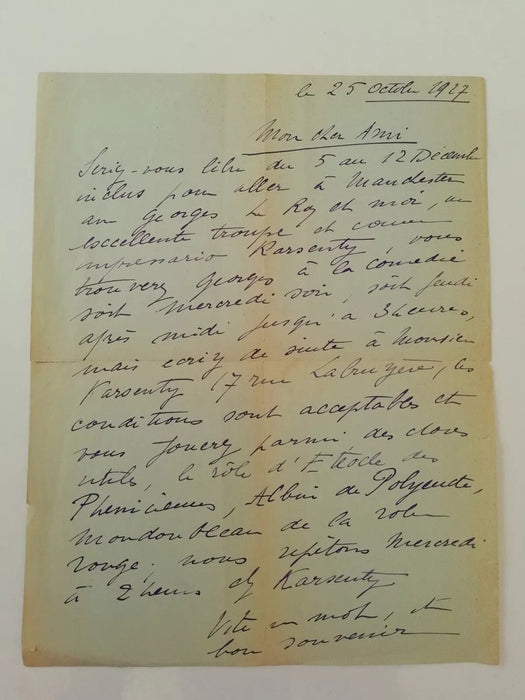 le 25 Octobre 1927
Mon cher Ami
Seriez-vous libre du 5 au 12 Décembre
inclus pour aller à Manchester
av Georges Le Roy et moi, une
excellente troupe et comme
impressario Karsenty, vous
trouverez Georges à la comédie
soit mercredi soir, soit jeudi
après midi jusqu'à 3 heures,
mais ecriez de suite à Monsieur
Karsenty 17 rue Labruyère, les
conditions sont acceptables et
vous jouerez parmi des choses
utiles, le rôle d'Etéocle des
Phéniciennes, Albin de Polyeucte,
Mondoubleau de la robe
rouge, nous répétons Mercredi
à 2 heures chez Karsenty
Vite un mot, et
bon souvenir